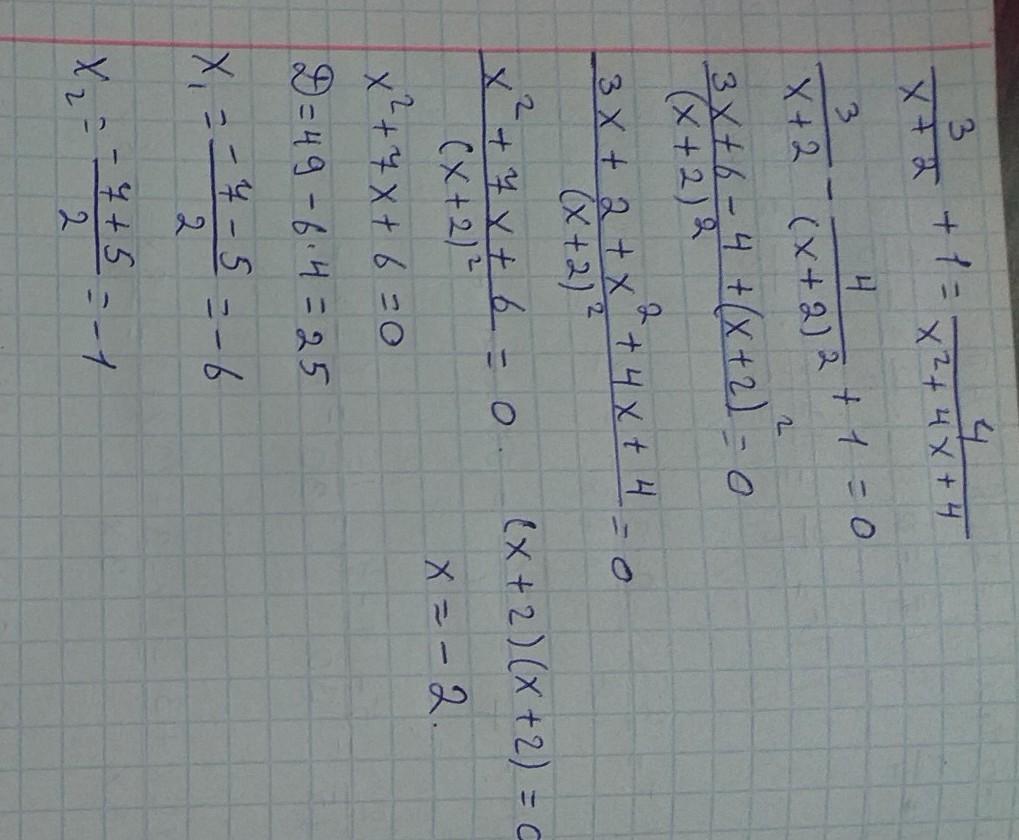 3/(x+2) + 1 = 4/(x²+4x+4)
3/(x+2) - 4/(x+2)² + 1 = 0
(3x+6-4+(x+2)²)/(x+2)² = 0
(3x+2+x²+4x+4)/(x+2)² = 0
(x²+7x+6)/(x+2)² = 0. (x+2)(x+2) = 0
x = -2.
x²+7x+6=0
D=49-6·4=25
x₁ = (-7-5)/2 = -6
x₂ = (-7+5)/2 = -1